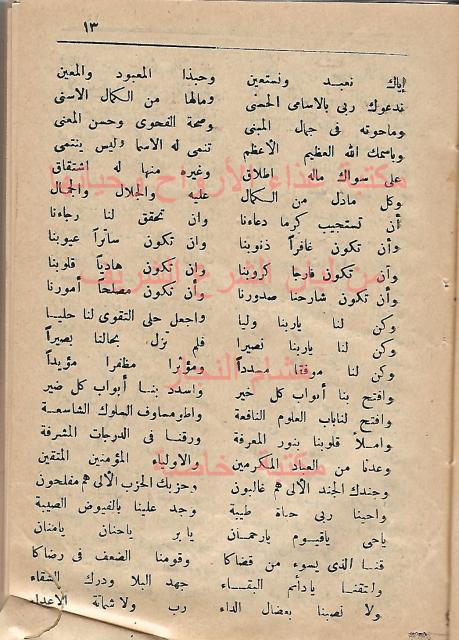 ١٣
إياك نعبد ونستعين وحبذا المعبود والمعين
ندعوك ربى بالاسامى الحسنى ومالها من الكمال الاسنى
وماحوته فى جمال المبنى وصحة الفحوى وحسن المعنى
وباسمك الله العظيم الأعظم تنمى له الاسما وليس ينتمى
على سواك ماله إطلاق وغيره منها له اشتقاق
وكل مادل من الكمال عليه والجلال والجمال
أن تستجيب كرما دعاءنا وان تحقق لنا رجاءنا
وأن تكون غافراً ذنوبنا وان تكون ساتراً عيوبنا
وأن تكون فارجا كروبنا وان تكون هادياً قلوبنا
وأن تكون شارحنا صدورنا وأن تكون مصلحاً أمورنا
وكن لنا ياربنا وليا واجعل حلى التقوى لنا حليا
وكن لنا ياربنا نصيرا فلم تزل بحالنا بصيراً
وكن لنا موفقا مسدداً ومؤثرا مظفرا مؤيداً
وافتح بنا أبواب كل خير واسدد بنا أبواب كل ضير
وافتح لناباب العلوم النافعة واطومساوف السلوك الشاسعة
واملأ قلوبنا بنور المعرفة ورقنا فى الدرجات المشرفة
وعدنا من العباد المكرمين والاولياء المؤمنين المتقين
وجندك الجند الألى هم غالبون وحزبك الحزب الألى هم مفلحون
واحينا ربى حياة طيبة وجد علينا بالفيوض الصيبة
ياحى ياقيوم يارحمان يابر ياحنان يامنان
قنا الذى يسوء من قضاكا وقومنا الضعف فى رضاكا
ولتقنا يادائم البقاء جهد البلا ودرك الشقاء
ولا تصبنا بعضال الداء رب ولا شماتة الاعداء
مكتبة غذاء الأرواح وحياتها
من لبان الشرع الشريف
هشام النجار
مكتبة خاصة